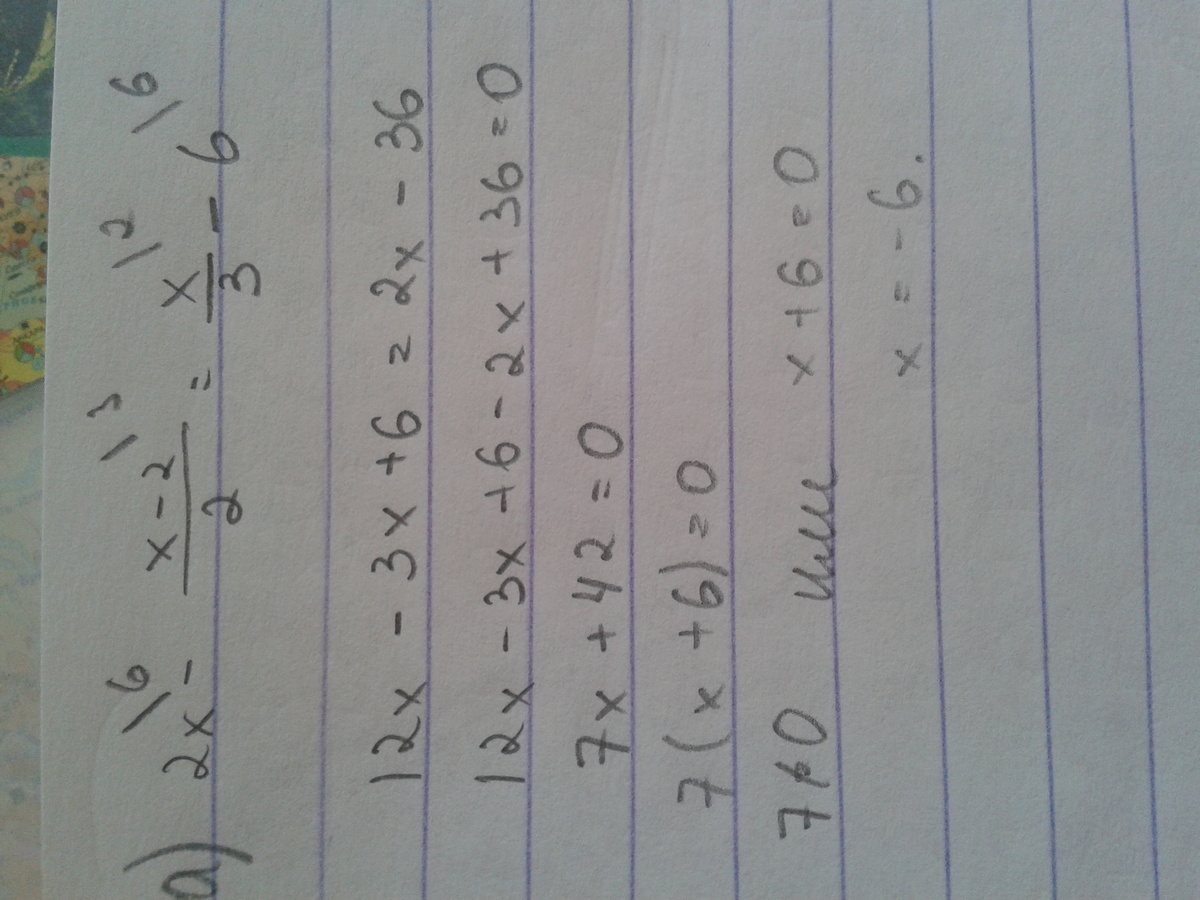 а) 2x\6 - (x-2)/2\3 = x/3\2 - 6\6
12x - 3x + 6 = 2x - 36
12x - 3x + 6 - 2x + 36 = 0
7x + 42 = 0
7(x + 6) = 0
7≠0 или x + 6 = 0
x = -6.